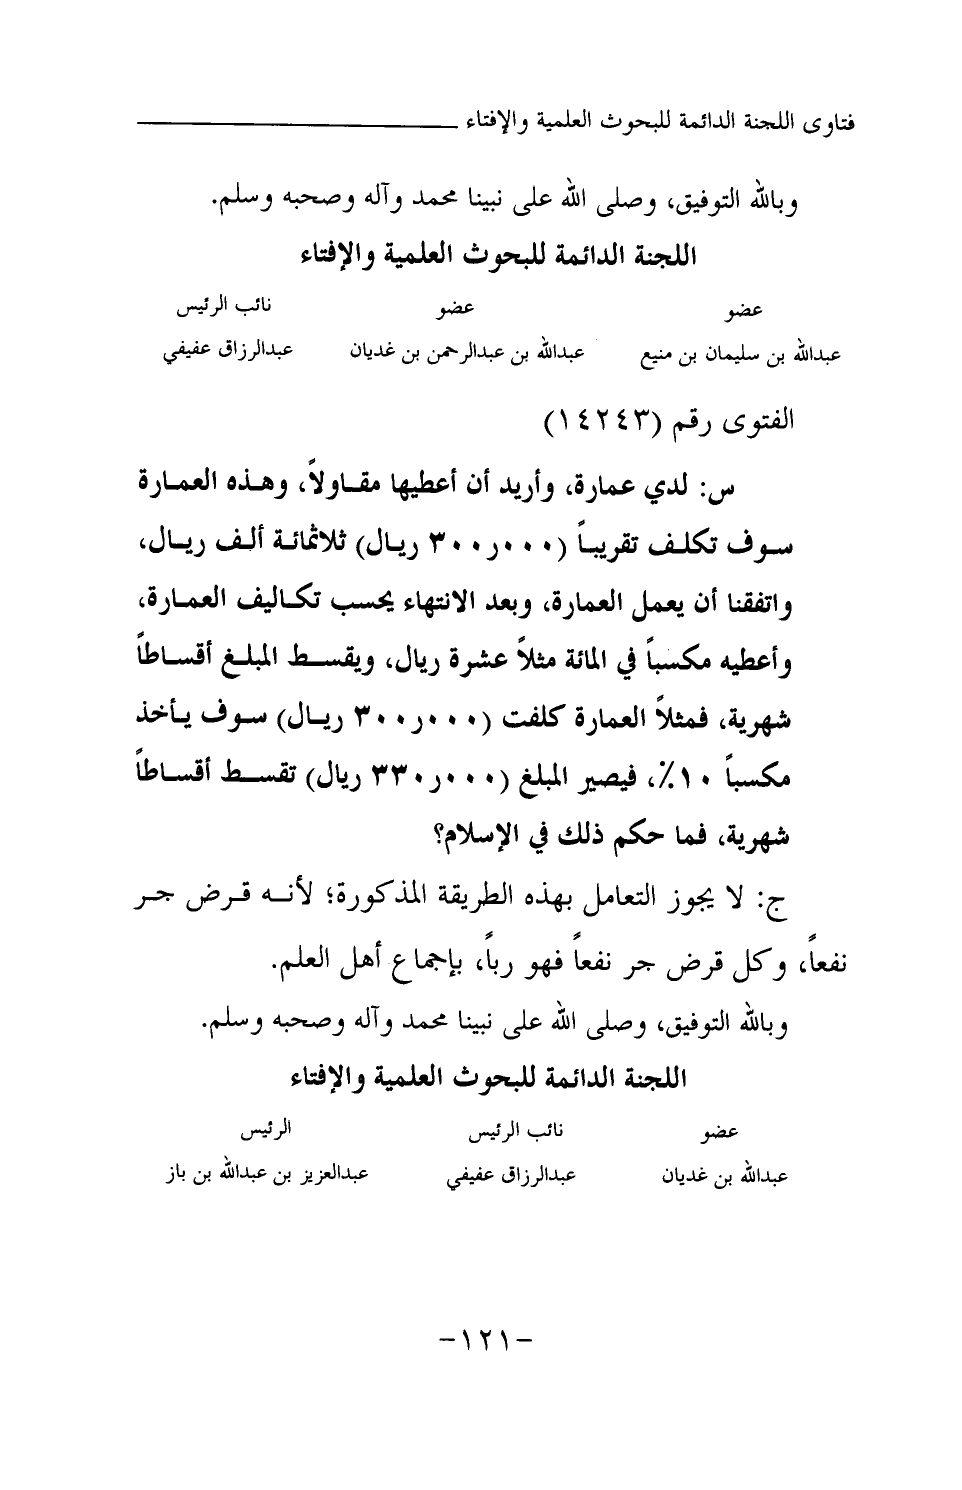 فتاوى اللجنة الدائمة للبحوث العلمية والإفتاء
وبالله التوفيق، وصلى الله على نبينا محمد وآله وصحبه وسلم.
اللجنة الدائمة للبحوث العلمية والإفتاء
عضو عضو نائب الرئيس
عبدالله بن سليمان بن منيع عبدالله بن عبدالرحمن بن غديان عبدالرزاق عفيفي
الفتوى رقم (١٤٢٤٣)
س: لدي عمارة، وأريد أن أعطيها مقاولاً، وهذه العمارة
سوف تكلف تقريباً (٣٠٠ر٠٠٠ ريال) ثلاثمائة ألف ريال،
واتفقنا أن يعمل العمارة، وبعد الانتهاء يحسب تكاليف العمارة،
وأعطيه مكسباً في المائة مثلاً عشرة ريال، ويقسط المبلغ أقساطاً
شهرية، فمثلاً العمارة كلفت (٣٠٠ر٠٠٠ ريال) سوف يأخذ
مكسباً ١٠٪، فيصير المبلغ (٣٣٠ر٠٠٠ ريال) تقسط أقساطاً
شهرية، فما حكم ذلك في الإسلام؟
ج: لا يجوز التعامل بهذه الطريقة المذكورة؛ لأنه قرض جر
نفعاً، وكل قرض جر نفعاً فهو رباً، بإجماع أهل العلم.
وبالله التوفيق، وصلى الله على نبينا محمد وآله وصحبه وسلم.
اللجنة الدائمة للبحوث العلمية والإفتاء
عضو نائب الرئيس الرئيس
عبدالله بن غديان عبدالرزاق عفيفي عبدالعزيز بن عبدالله بن باز
-١٢١-